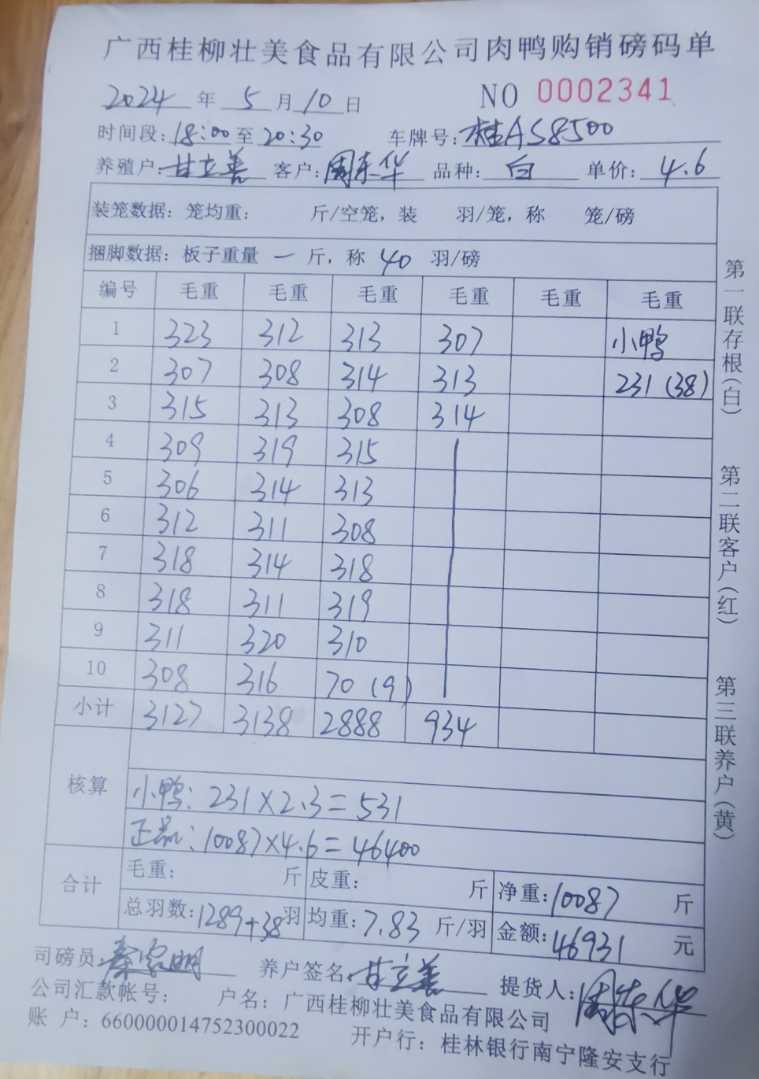 广西桂柳壮美食品有限公司肉鸭购销磅码单
2024 年 5 月 10 日 NO 0002341
时间段: 18:00 至 20:30 车牌号: 桂AS8500
养殖户: 甘立善 客户: 周东华 品种: 白 单价: 4.6
装笼数据: 笼均重: 斤/空笼, 装 羽/笼, 称 笼/磅
捆脚数据: 板子重量 一 斤, 称 40 羽/磅
编号 毛重 毛重 毛重 毛重 毛重 毛重
1 323 312 313 307 小鸭
2 307 308 314 313 231 (38)
3 315 313 308 314
4 309 319 315
5 306 314 313
6 312 311 308
7 318 314 318
8 318 311 319
9 311 320 310
10 308 316 70 (9)
小计 3127 3138 2888 934
核算
小鸭: 231×2.3=531
正品: 10087×4.6=46400
合计 毛重: 斤 皮重: 斤 净重: 10087 斤
总羽数: 1289+38 羽 均重: 7.83 斤/羽 金额: 46931 元
司磅员: 秦家明 养户签名: 甘立善 提货人: 周东华
公司汇款帐号: 户名: 广西桂柳壮美食品有限公司
账 户: 660000014752300022 开户行: 桂林银行南宁隆安支行
第一联存根(白)
第二联客户(红)
第三联养户(黄)